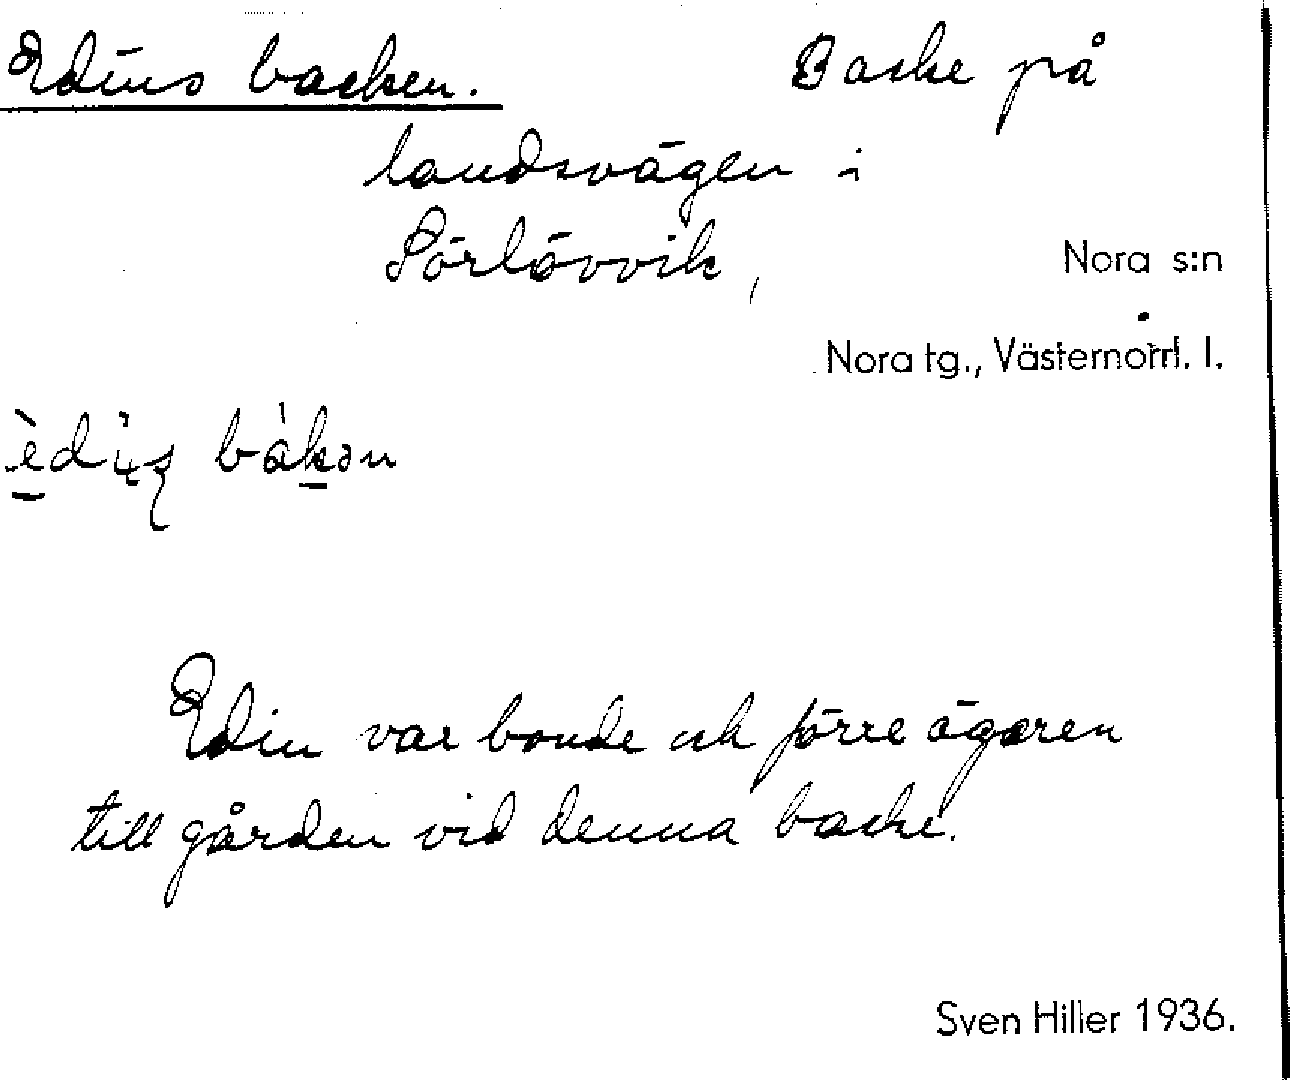 Edins backen. Backe på
landsvägen i
Sörlövvik,
Nora s:n
Nora tg., Västernorrl. l.
Edin var bonde och förre ägaren
till gården vid denna backe.
Sven Hiller 1936.